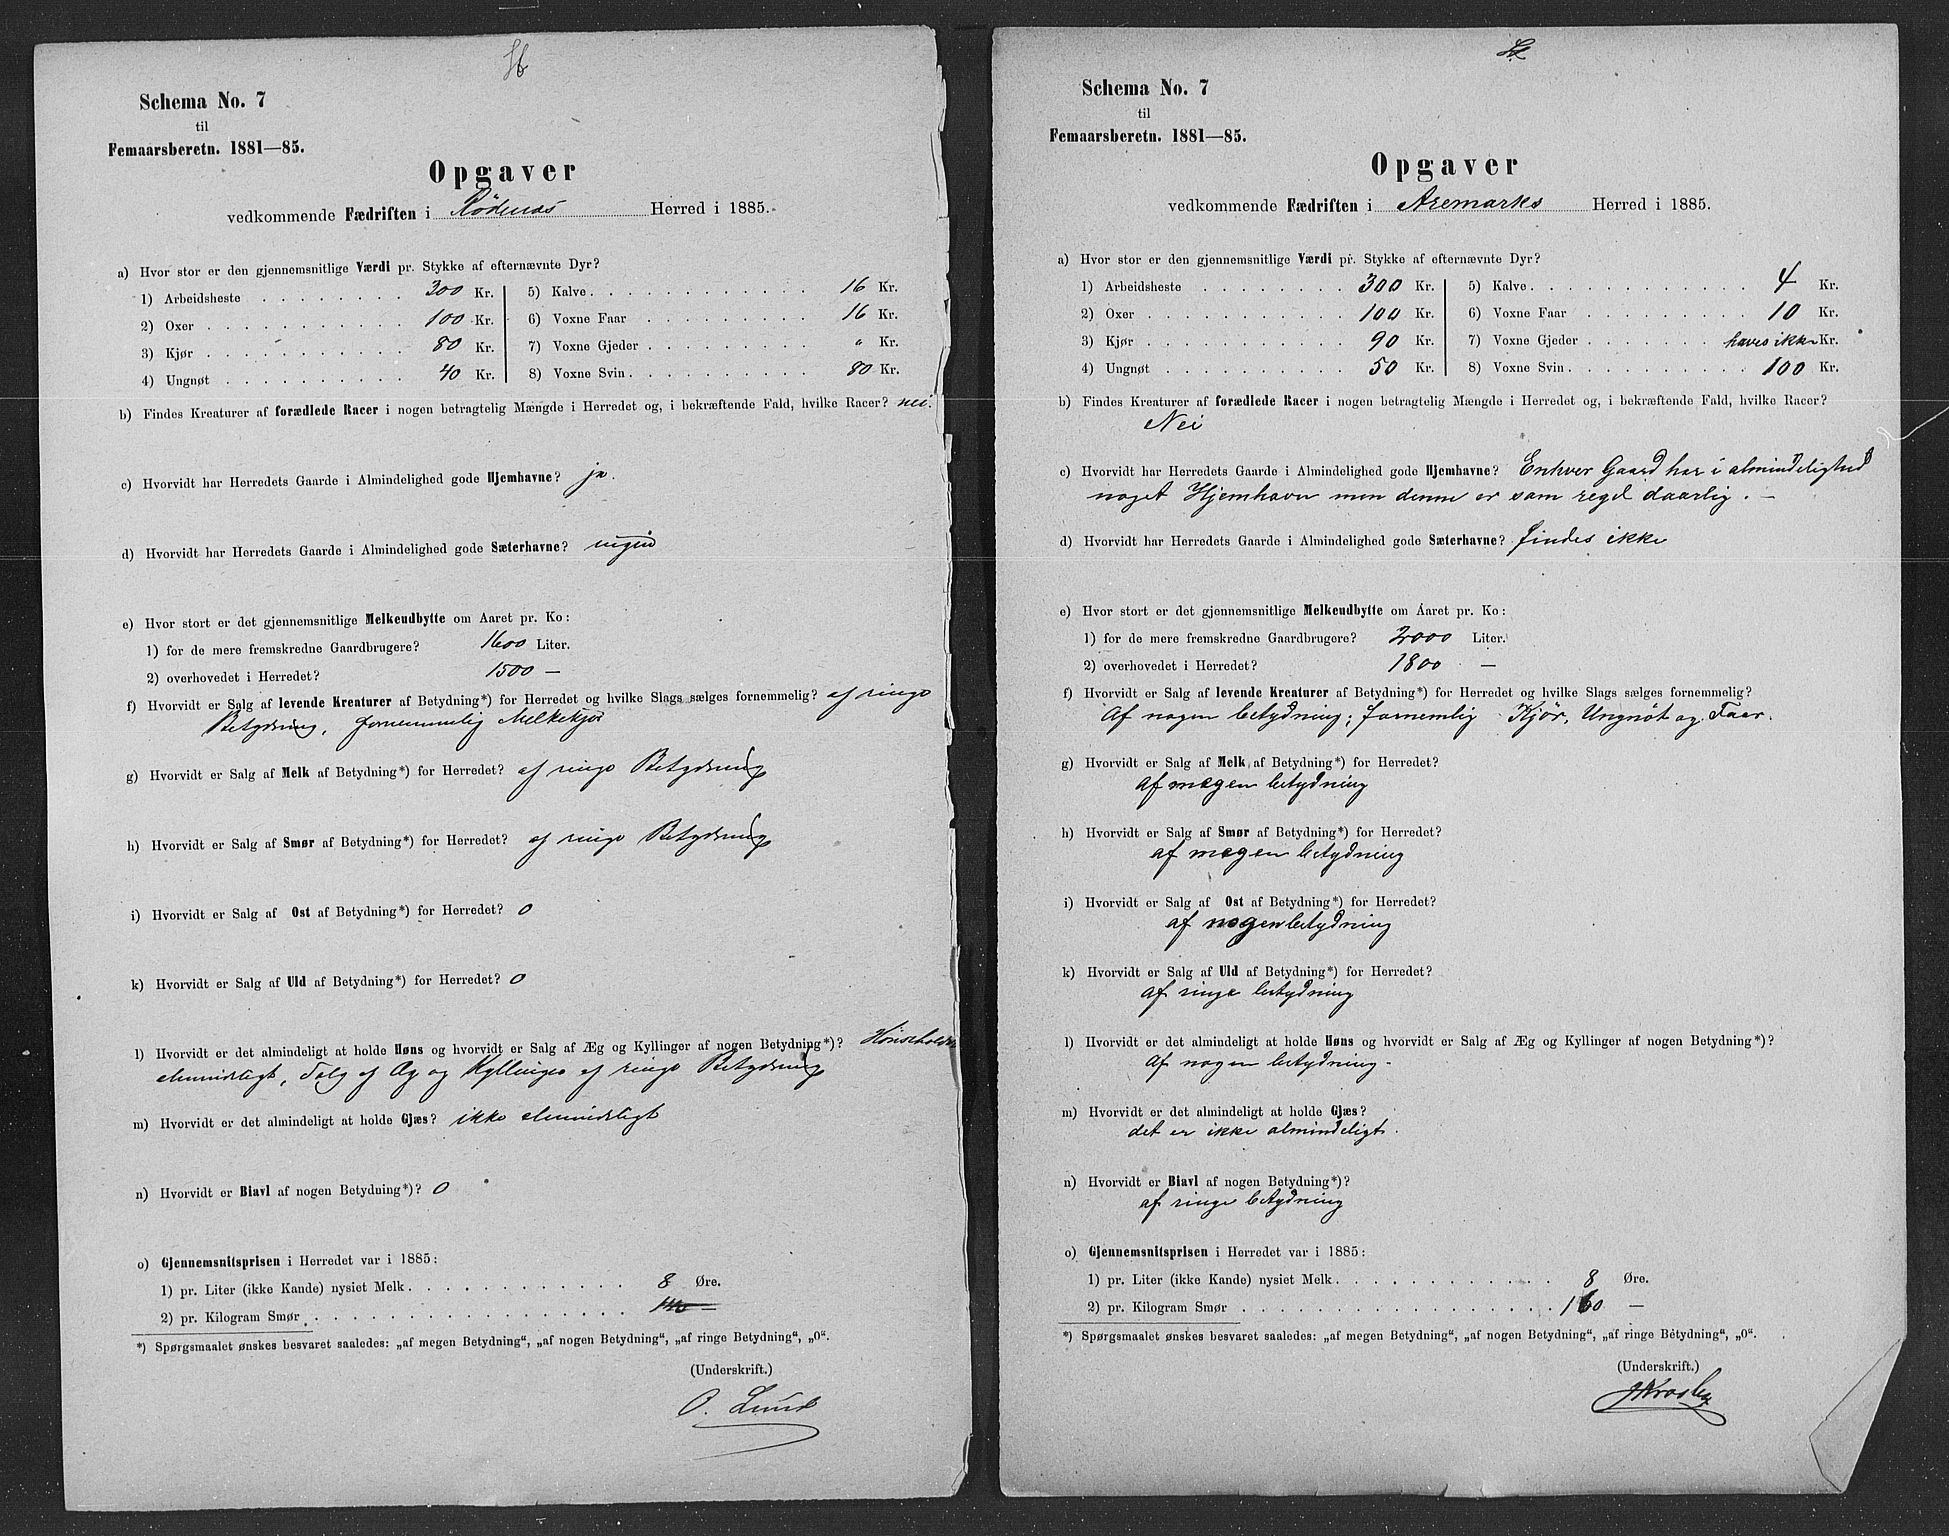 Schema No. 7
til
Femaarsberetn. 1881—85.
Opgaver
vedkommende Fædriften i Rödenæs Herred i 1885.
a) Hvor stor er den gjennemsnitlige Værdi pr. Stykke af efternævnte Dyr?
1) Arbeidsheste . . . . . . . . 300 Kr.
2) Oxer . . . . . . . . . . . 100 Kr.
3) Kjør . . . . . . . . . . . 80 Kr.
4) Ungnøt . . . . . . . . . . 40 Kr.
5) Kalve . . . . . . . . . . . . 16 Kr.
6) Voxne Faar . . . . . . . . . 16 Kr.
7) Voxne Gjeder . . . . . . . . „ Kr.
8) Voxne Svin . . . . . . . . . . 80 Kr.
b) Findes Kreaturer af forædlede Racer i nogen betragtelig Mængde i Herredet og, i bekræftende Fald, hvilke Racer? nei.
c) Hvorvidt har Herredets Gaarde i Almindelighed gode Hjemhavne? ja.
d) Hvorvidt har Herredets Gaarde i Almindelighed gode Sæterhavne? ingen
e) Hvor stort er det gjennemsnitlige Melkeudbytte om Aaret pr. Ko:
1) for de mere fremskredne Gaardbrugere? 1600 Liter.
2) overhovedet i Herredet? 1500 —
f) Hvorvidt er Salg af levende Kreaturer af Betydning*) for Herredet og hvilke Slags sælges fornemmelig? af ringe
Betydning, fornemmelig Melkekjør
g) Hvorvidt er Salg af Melk af Betydning*) for Herredet? af ringe Betydning
h) Hvorvidt er Salg af Smør af Betydning*) for Herredet? af ringe Betydning
i) Hvorvidt er Salg af Ost af Betydning*) for Herredet? 0
k) Hvorvidt er Salg af Uld af Betydning*) for Herredet? 0
l) Hvorvidt er det almindeligt at holde Høns og hvorvidt er Salg af Æg og Kyllinger af nogen Betydning*)? Hönsehold er
almindeligt, Salg af Æg og Kyllinger af ringe Betydning
m) Hvorvidt er det almindeligt at holde Gjæs? ikke almindeligt
n) Hvorvidt er Biavl af nogen Betydning*)? 0
o) Gjennemsnitsprisen i Herredet var i 1885:
1) pr. Liter (ikke Kande) nysiet Melk . . . . . . . . . . . 8 Øre.
2) pr. Kilogram Smør . . . . . . . . . . . . . . . . —
*) Spørgsmaalet ønskes besvaret saaledes: „af megen Betydning“, „af nogen Betydning“, „af ringe Betydning“, „0“.
(Underskrift.)
O. Lund
Schema No. 7
til
Femaarsberetn. 1881—85.
Opgaver
vedkommende Fædriften i Aremarks Herred i 1885.
a) Hvor stor er den gjennemsnitlige Værdi pr. Stykke af efternævnte Dyr?
1) Arbeidsheste . . . . . . . . 300 Kr.
2) Oxer . . . . . . . . . . . 100 Kr.
3) Kjør . . . . . . . . . . . 90 Kr.
4) Ungnøt . . . . . . . . . . 50 Kr.
5) Kalve . . . . . . . . . . . . 4 Kr.
6) Voxne Faar . . . . . . . . . 10 Kr.
7) Voxne Gjeder . . . . . . . haves ikke Kr.
8) Voxne Svin . . . . . . . . . . 100 Kr.
b) Findes Kreaturer af forædlede Racer i nogen betragtelig Mængde i Herredet og, i bekræftende Fald, hvilke Racer?
Nei
c) Hvorvidt har Herredets Gaarde i Almindelighed gode Hjemhavne? Enhver Gaard har i almindelighed
noget Hjemhavn men denne er som regel daarlig. —
d) Hvorvidt har Herredets Gaarde i Almindelighed gode Sæterhavne? findes ikke
e) Hvor stort er det gjennemsnitlige Melkeudbytte om Aaret pr. Ko:
1) for de mere fremskredne Gaardbrugere? 2000 Liter.
2) overhovedet i Herredet? 1800 —
f) Hvorvidt er Salg af levende Kreaturer af Betydning*) for Herredet og hvilke Slags sælges fornemmelig?
Af nogen betydning; fornemlig Kjør, Ungnöt og Faar.
g) Hvorvidt er Salg af Melk af Betydning*) for Herredet?
af megen betydning
h) Hvorvidt er Salg af Smør af Betydning*) for Herredet?
af megen betydning
i) Hvorvidt er Salg af Ost af Betydning*) for Herredet?
af nogen betydning
k) Hvorvidt er Salg af Uld af Betydning*) for Herredet?
af ringe betydning
l) Hvorvidt er det almindeligt at holde Høns og hvorvidt er Salg af Æg og Kyllinger af nogen Betydning*)?
af nogen betydning.
m) Hvorvidt er det almindeligt at holde Gjæs?
det er ikke almindeligt.
n) Hvorvidt er Biavl af nogen Betydning*)?
af ringe betydning
o) Gjennemsnitsprisen i Herredet var i 1885:
1) pr. Liter (ikke Kande) nysiet Melk . . . . . . . . . . . 8 Øre.
2) pr. Kilogram Smør . . . . . . . . . . . . . . . . 160 —
*) Spørgsmaalet ønskes besvaret saaledes: „af megen Betydning“, „af nogen Betydning“, „af ringe Betydning“, „0“.
(Underskrift.)